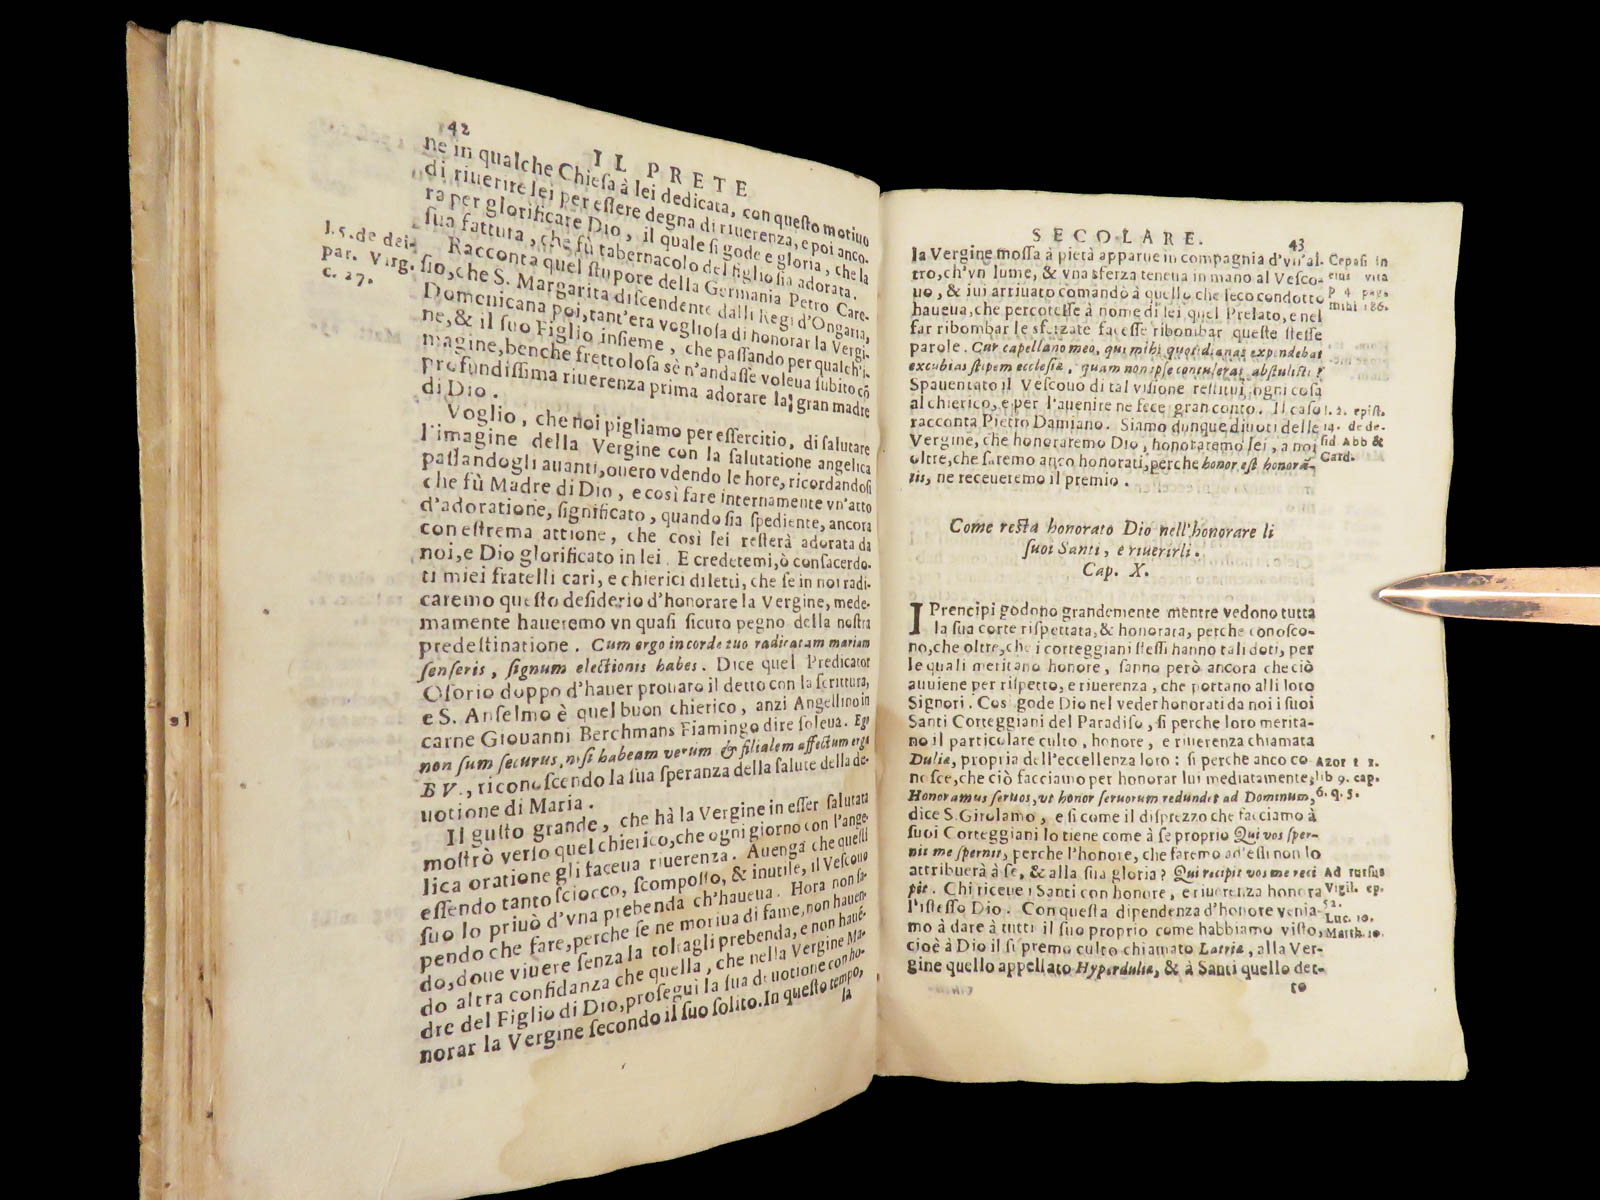 42
IL PRETE
ne in qualche Chieſa à lei dedicata, con queſto motiuo
di riuerire lei per eſſere degna di riuerenza, e poi anco-
ra per glorificare Dio, il quale ſi gode e gloria, che la
ſua fattura, che fù tabernacolo del figlio ſia adorata.
Racconta quel ſtupore della Germania Petro Care-
l. 5. de dei-
par. Virg.
c. 27.
ſio, che S. Margarita diſcendente dalli Regi d'Ongaria,
Domenicana poi, tant'era voglioſa di honorar la Vergi-
ne, & il ſuo Figlio inſieme, che paſſando per qualch'i-
magine, benche frettoloſa sè n'andaſſe voleua ſubito cõ
profundiſſima riuerenza prima adorare la gran madre
di Dio.
Voglio, che noi pigliamo per eſſercitio, di ſalutare
l'imagine della Vergine con la ſalutatione angelica
paſſandogli auanti, ouero vdendo le hore, ricordandoſi
che fù Madre di Dio, e così fare internamente vn'atto
d'adoratione, ſignificato, quando ſia ſpediente, ancora
con eſtrema attione, che così lei reſterà adorata da
noi, e Dio glorificato in lei. E credetemi, ò conſacerdo-
ti miei fratelli cari, e chierici diletti, che ſe in noi radi-
caremo queſto deſiderio d'honorare la Vergine, mede-
mamente haueremo vn quaſi ſicuro pegno della noſtra
predeſtinatione. Cum ergo in corde tuo radicatam mariam
ſenſeris, ſignum electionis habes. Dice quel Predicator
Oſorio doppo d'hauer prouato il detto con la ſcrittura,
e S. Anſelmo è quel buon chierico, anzi Angellino in
carne Giouanni Berchmans Fiamingo dire ſoleua. Ego
non ſum ſecurus, niſi habeam verum & filialem affectum erga
B V., riconoſcendo la ſua ſperanza della ſalute della de-
uotione di Maria.
Il guſto grande, che hà la Vergine in eſſer ſalutata
moſtrò verſo quel chierico, che ogni giorno con l'ange-
lica oratione gli faceua riuerenza. Auenga che queſti
eſſendo tanto ſciocco, ſcompoſto, & inutile, il Veſcouo
ſuo lo priuò d'vna prebenda ch'haueua. Hora non ſa-
pendo che fare, perche ſe ne moriua di fame, non hauen-
do, doue viuere ſenza la toltagli prebenda, e non hauẽ-
do altra confidanza che quella, che nella Vergine Ma-
dre del Figlio di Dio, proſegui la ſua deuotione con ho-
norar la Vergine ſecondo il ſuo ſolito. In queſto tempo,
la
SECOLARE.
43
la Vergine moſſa à pietà apparue in compagnia d'vn'al-
tro, ch'vn lume, & vna sferza teneua in mano al Veſco-
uo, & iui arriuato comandò à quello che ſeco condotto
haueua, che percoteſſe à nome di lei quel Prelato, e nel
far ribombar le sferzate faceſſe ribombar queſte ſteſſe
parole. Cur capellano meo, qui mihi quotidianas expendebat
excubias ſtipem eccleſiæ, quam non ipſe contuleras abſtuliſti?
Spauentato il Veſcouo di tal viſione reſtituì ogni coſa
al chierico, e per l'auenire ne fece gran conto. Il caſo
racconta Pietro Damiano. Siamo dunque diuoti delle
Vergine, che honoraremo Dio, honoraremo lei, a noi
oltre, che ſaremo anco honorati, perche honor eſt honorã-
tis, ne receueremo il premio.
Cepaſi in
eius vita
p. 4 pag.
mihi 186.
l. 2. epiſt.
14. de de-
ſid Abb &
Card.
Come reſta honorato Dio nell'honorare li
ſuoi Santi, e riuerirli.
Cap. X.
I Prencipi godono grandemente mentre vedono tutta
la ſua corte riſpettata, & honorata, perche conoſco-
no, che oltre, che i corteggiani ſteſſi hanno tali doti, per
le quali meritano honore, ſanno però ancora che ciò
auuiene per riſpetto, e riuerenza, che portano alli loro
Signori. Così gode Dio nel veder honorati da noi i ſuoi
Santi Corteggiani del Paradiſo, ſi perche loro merita-
no il particolare culto, honore, e riuerenza chiamata
Dulia, propria dell'eccellenza loro: ſi perche anco co
noſce, che ciò facciamo per honorar lui mediatamente,
Honoramus ſeruos, vt honor ſeruorum redundet ad Dominum,
dice S. Girolamo, e ſi come il diſprezzo che facciamo à
ſuoi Corteggiani lo tiene come à ſe proprio Qui vos ſper-
nit me ſpernit, perche l'honore, che faremo ad'eſſi non lo
attribuerà à ſe, & alla ſua gloria? Qui recipit vos me reci
pit. Chi riceue i Santi con honore, e riuerenza honora
l'iſteſſo Dio. Con queſta dipendenza d'honore venia-
mo à dare à tutti il ſuo proprio come habbiamo viſto,
cioè à Dio il ſupremo culto chiamato Latria, alla Ver-
gine quello appellato Hyperdulia, & à Santi quello det-
to
Azor t 1.
lib 9. cap.
6. q. 5.
Ad rurſus
Vigil. ep.
52.
Luc. 10.
Matth 10.